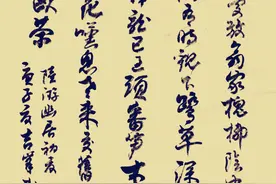 處放翁家槐柳陰
有時觀下鷺草深
龍已過頭番笋木
花嘆息老來交舊
甌茶
陸游幽居初夏